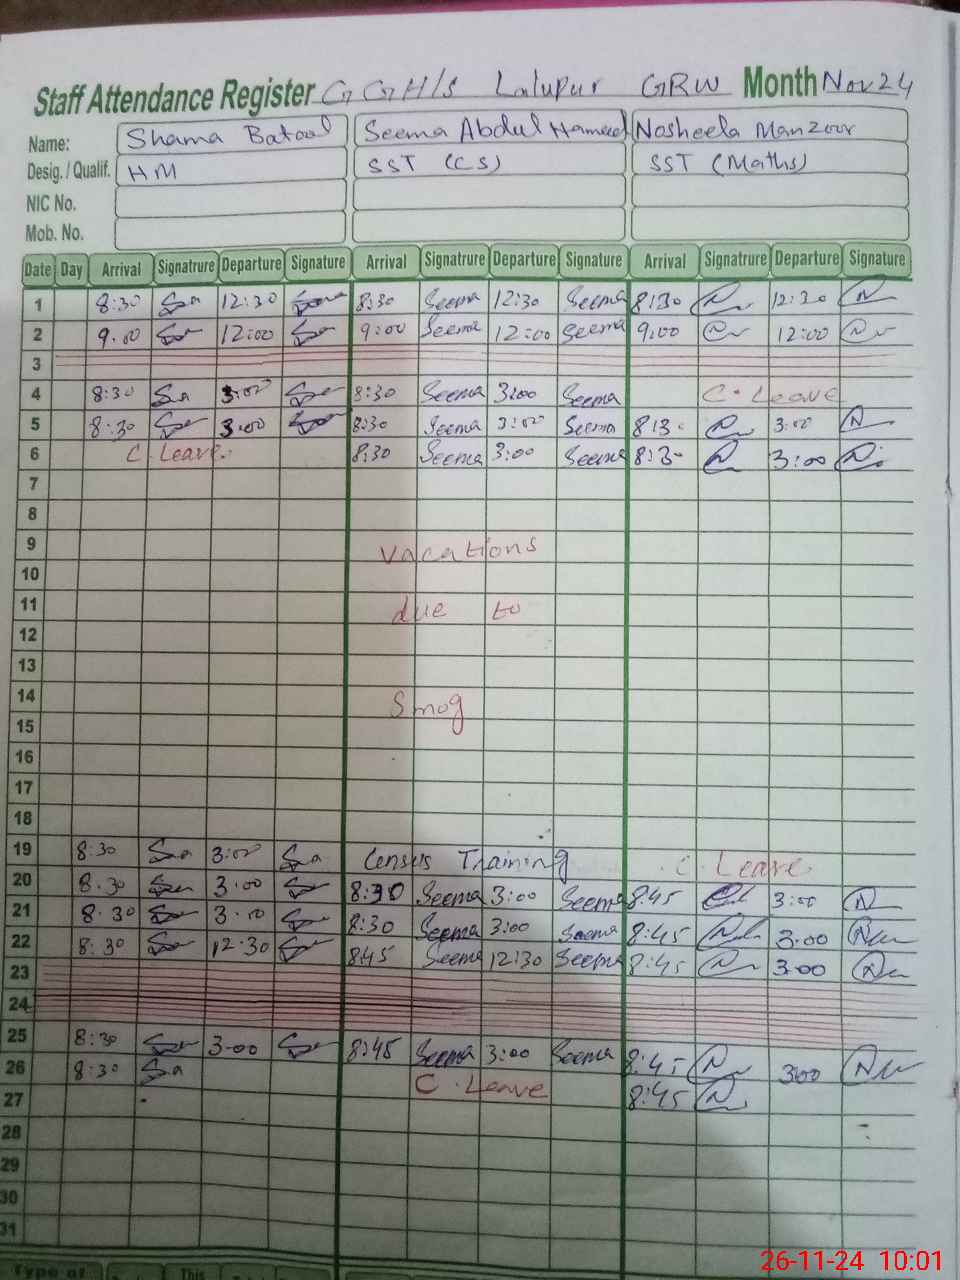 Staff Attendance Register GGH/s Lalupur GRW Month Nov 24
Name: Shama Batool Seema Abdul Hameed Nosheela Manzoor
Desig. / Qualif. HM SST (CS) SST (Maths)
NIC No.
Mob. No.
Date Day Arrival Signatrure Departure Signature Arrival Signatrure Departure Signature Arrival Signatrure Departure Signature
1 8:30 12:30 8:30 Seema 12:30 Seema 8:30 12:30
2 9.00 12:00 9:00 Seema 12:00 Seema 9:00 12:00
3
4 8:30 3:00 8:30 Seema 3:00 Seema C. Leave
5 8:30 3:00 8:30 Seema 3:00 Seema 8:30 3:00
6 C. Leave. 8:30 Seema 3:00 Seema 8:30 3:00
7
8
9 vacations
10
11 due to
12
13
14 Smog
15
16
17
18
19 8:30 3:00 Census Training C. Leave
20 8.30 3.00 8:30 Seema 3:00 Seema 8:45 3:00
21 8.30 3.00 8:30 Seema 3:00 Seema 8:45 3:00
22 8:30 12.30 8:45 Seema 12:30 Seema 8:45 3:00
23
24
25 8:30 3-00 8:45 Seema 3:00 Seema 8:45 3:00
26 8:30 C. Leave 8:45
27
28
29
30
31
Type of This
26-11-24 10:01